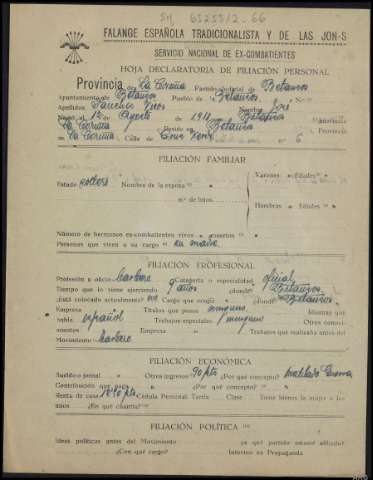 SM 65255/2-66
FALANGE ESPAÑOLA TRADICIONALISTA Y DE LAS JON-S
SERVICIO NACIONAL DE EX-COMBATIENTES
HOJA DECLARATORIA DE FILIACIÓN PERSONAL
Provincia de La Coruña Partido judicial de Betanzos
Ayuntamiento de Betanzos Pueblo de Betanzos
Apellidos Sanchez Nombre José
Nació el 12 de Agosto de 1911 Betanzos
La Coruña Reside en Betanzos Provincia
La Coruña Calle de Cruz Verde n.º 6
FILIACIÓN FAMILIAR
Estado soltero Nombres de la esposa Varones Edades
n.º de hijos Hembras Edades
Número de hermanos ex-combatientes vivos o muertos
Personas que viven a su cargo su madre
FILIACIÓN PROFESIONAL
Profesión u oficio barbero Categoría o especialidad oficial
Tiempo que lo tiene ejerciendo 9 años ¿donde? Betanzos
¿Está colocado actualmente? no Cargo que ocupa ¿donde? Betanzos
Empresa Títulos que posee ninguno Idiomas que
habla español Trabajos especiales ninguno Otros conoci-
mientos Empresa Trabajos que realizaba antes del
Movimiento barbero
FILIACIÓN ECONÓMICA
Sueldo o jornal Otros ingresos 90 pts ¿Por qué concepto? mutilado Guerra
Contribución que paga ¿Por qué concepto?
Renta de casa 10'40 pts Cédula Personal Tarifa Clase Tiene bienes la mujer o los
hijos ¿En qué cuantía?
FILIACIÓN POLÍTICA
Ideas políticas antes del Movimiento ¿a qué partido estuvo afiliado?
¿Con qué cargo? Intervino en Propaganda